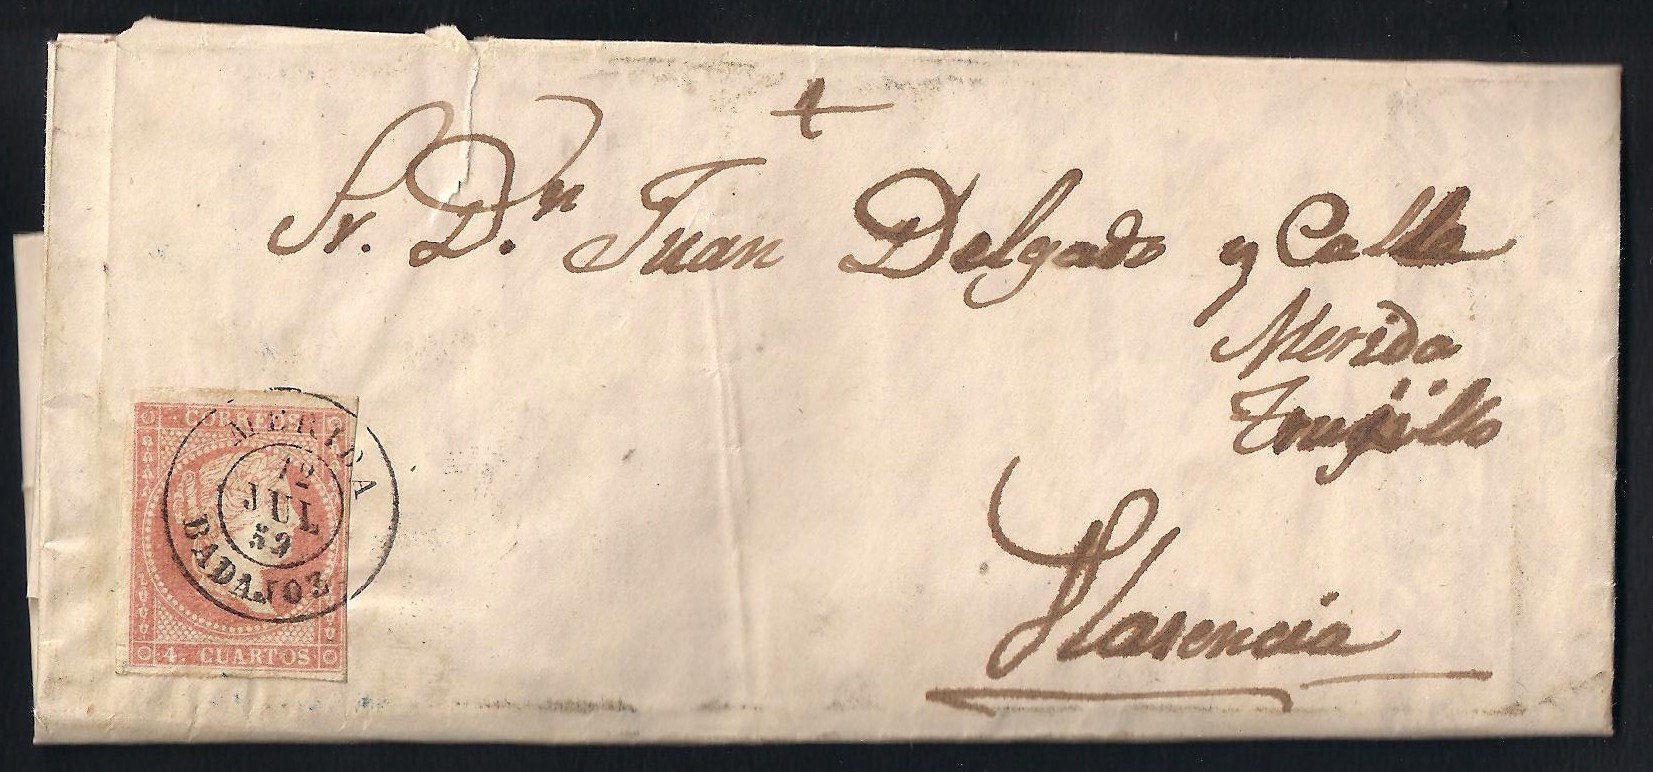 Sr. D.n Juan Delgado y Calle
Merida
Trujillo
Plasencia
CORREOS
MERIDA
12
JUL
59
BADAJOZ
4. CUARTOS